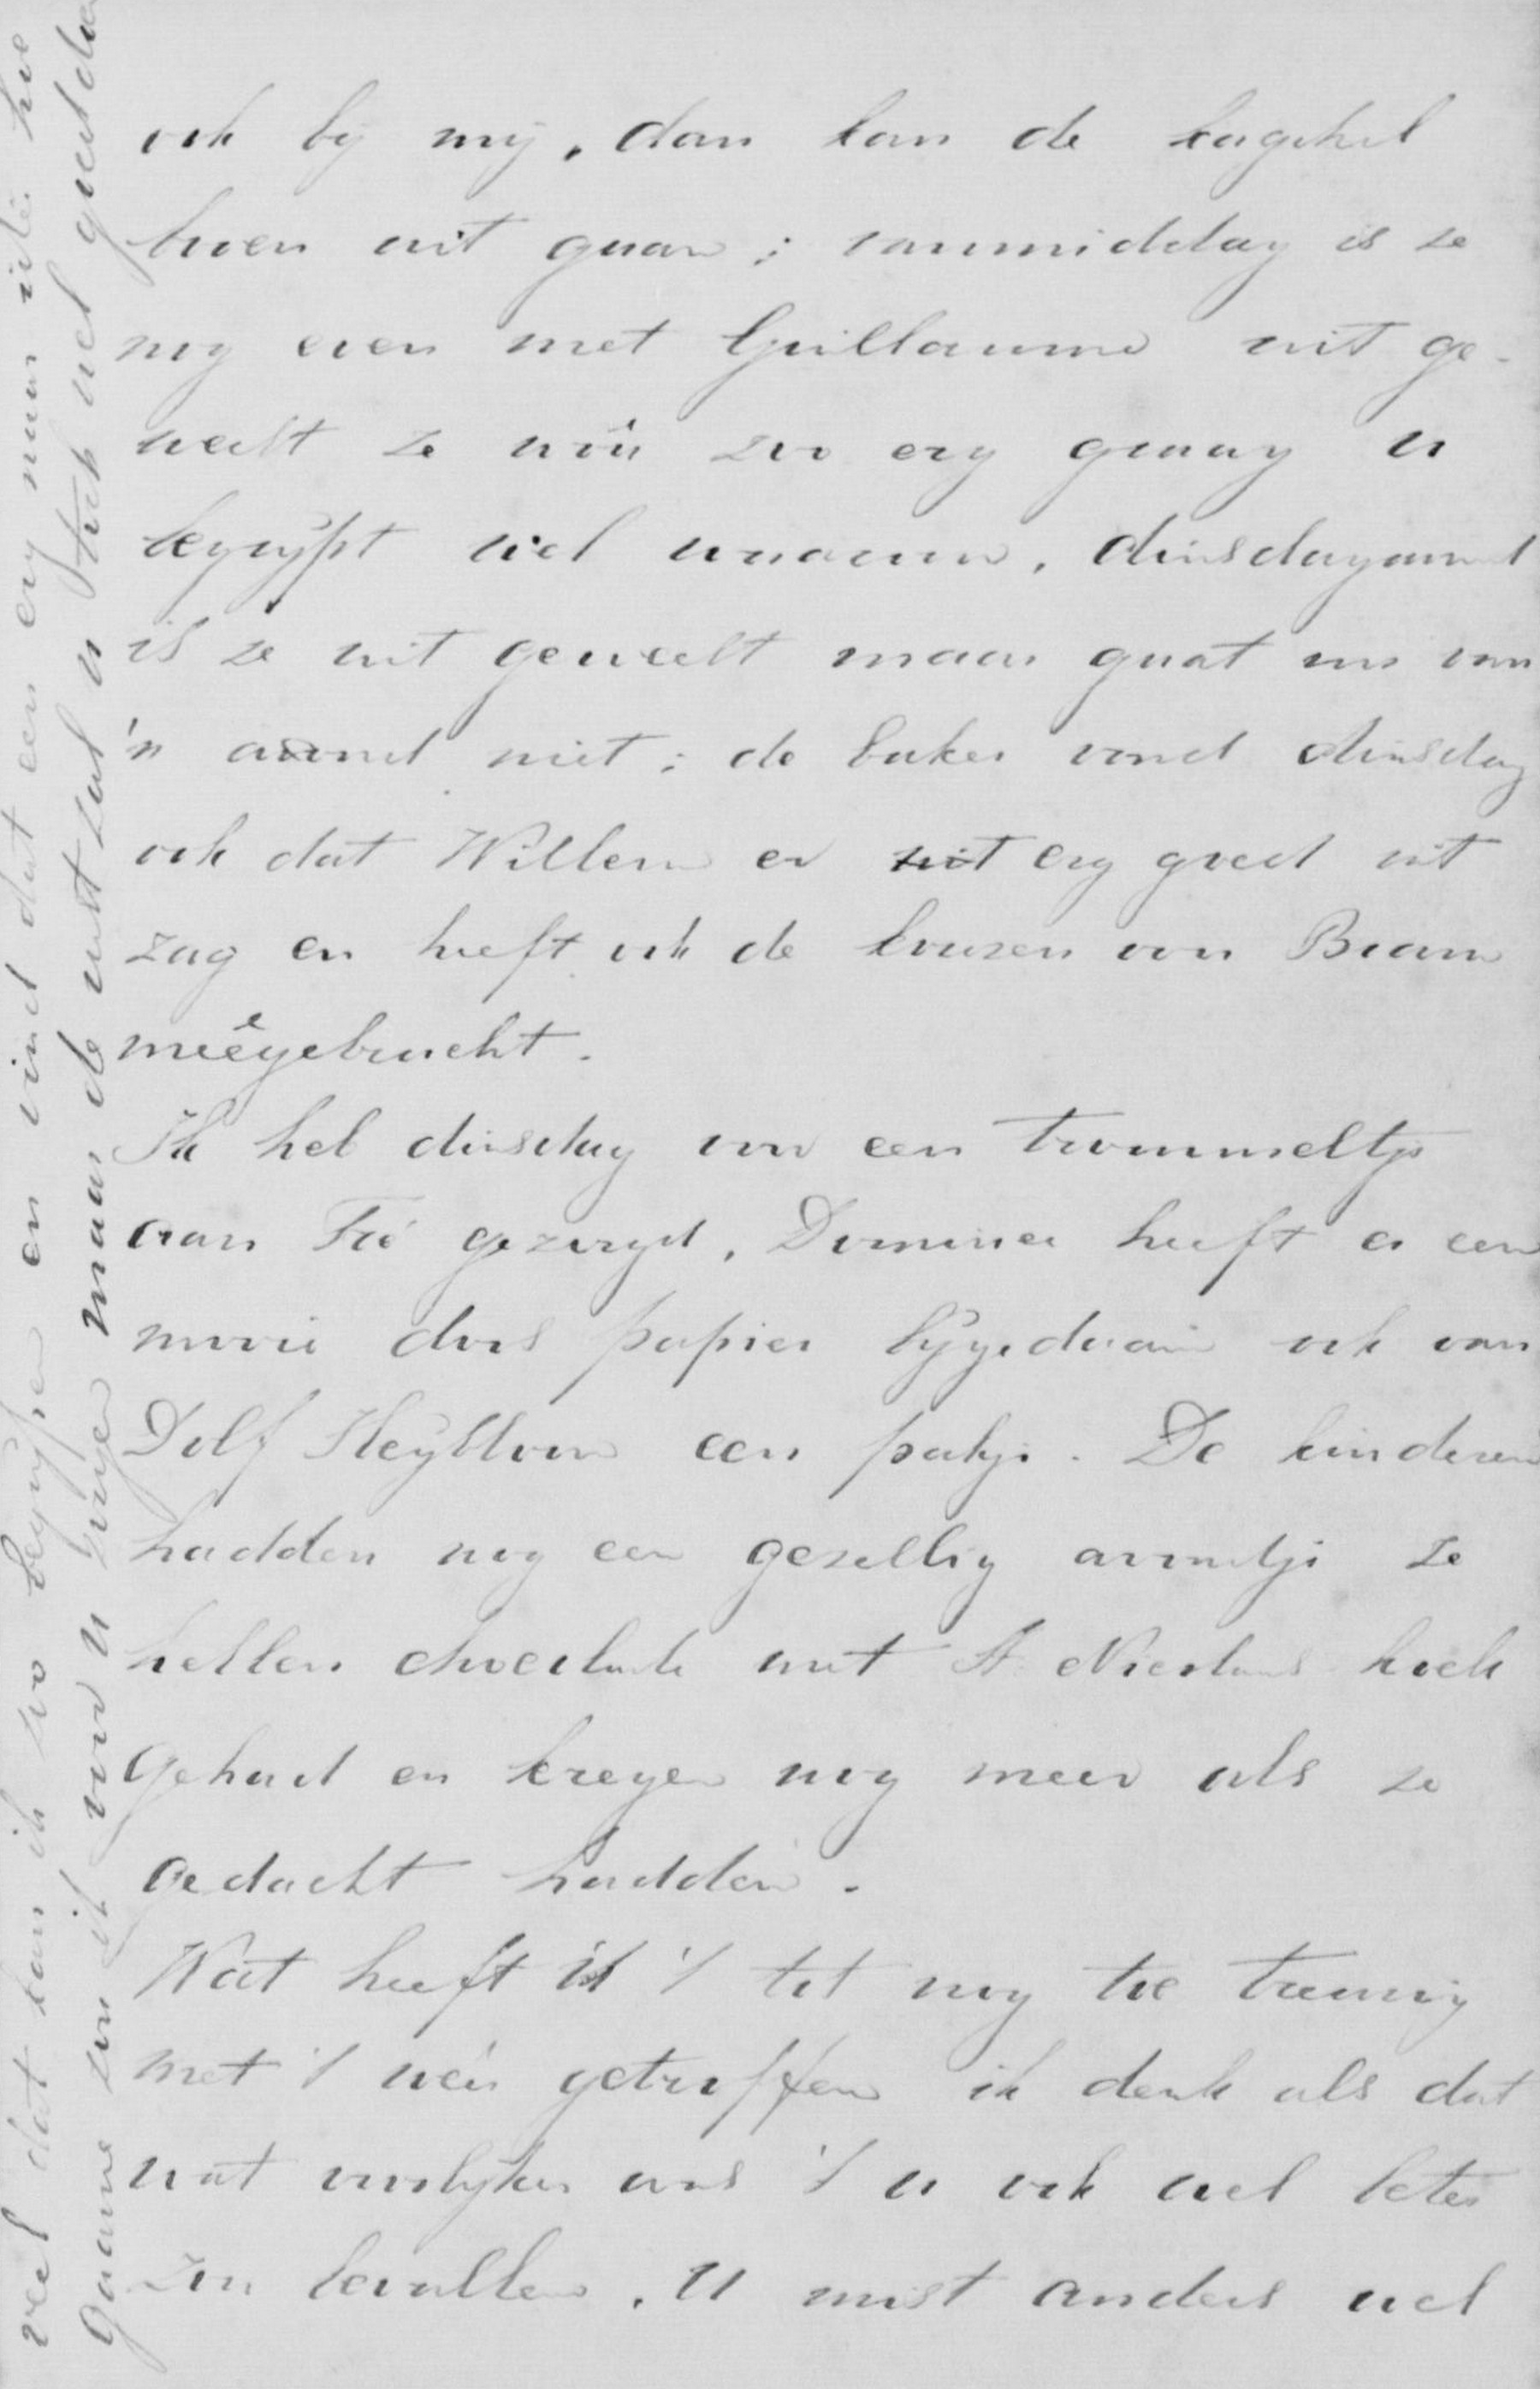 ook bij mij, dan kan de kagchel
boven uit gaan; vanmiddag is ze
nog even met Guillaume uit ge-
weest ze wou zoo erg graag u
begrijpt wel waarom, dinsdagavond
is ze uit geweest maar gaat nu van
'n avond niet; de baker vond dinsdag
ook dat Willem er uit erg goed uit
zag en heeft ook de kousen van Bram
meêgebracht.
Ik heb dinsdag voor een trommeltje
aan Fré gezorgd, Dominee heeft er een
mooie doos papier bijgedaan ook van
Dolf Heyblom een pakje. De kinderen
hadden nog een gezellig avondje ze
hebben chocolade met St. Nicolaas koek
gehad en kregen nog meer als ze
gedacht hadden.
Wat heeft U 't tot nog toe treurig
met 't weêr getroffen ik denk als dat
wat vroolijker was 't u ook wel beter
zou bevallen. U mist anders wel
veel dat kan ik zoo begrijpen en vind dat een erg naar idée hoe
gaarne zou ik voor u zorgen maar de rust zal u toch wel goed doen